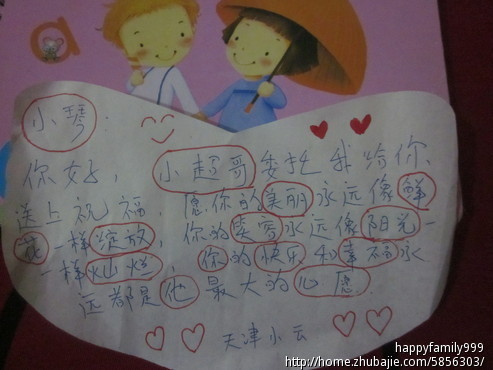 a
小琴
你好，小超哥委托我给你
送上祝福，愿你的美丽永远像鲜
花一样绽放，你的笑容永远像阳光一
一样灿烂，你的快乐和幸福永
远都是他最大的心愿
天津小云
happyfamily999
http://home.zhubajie.com/5856303/